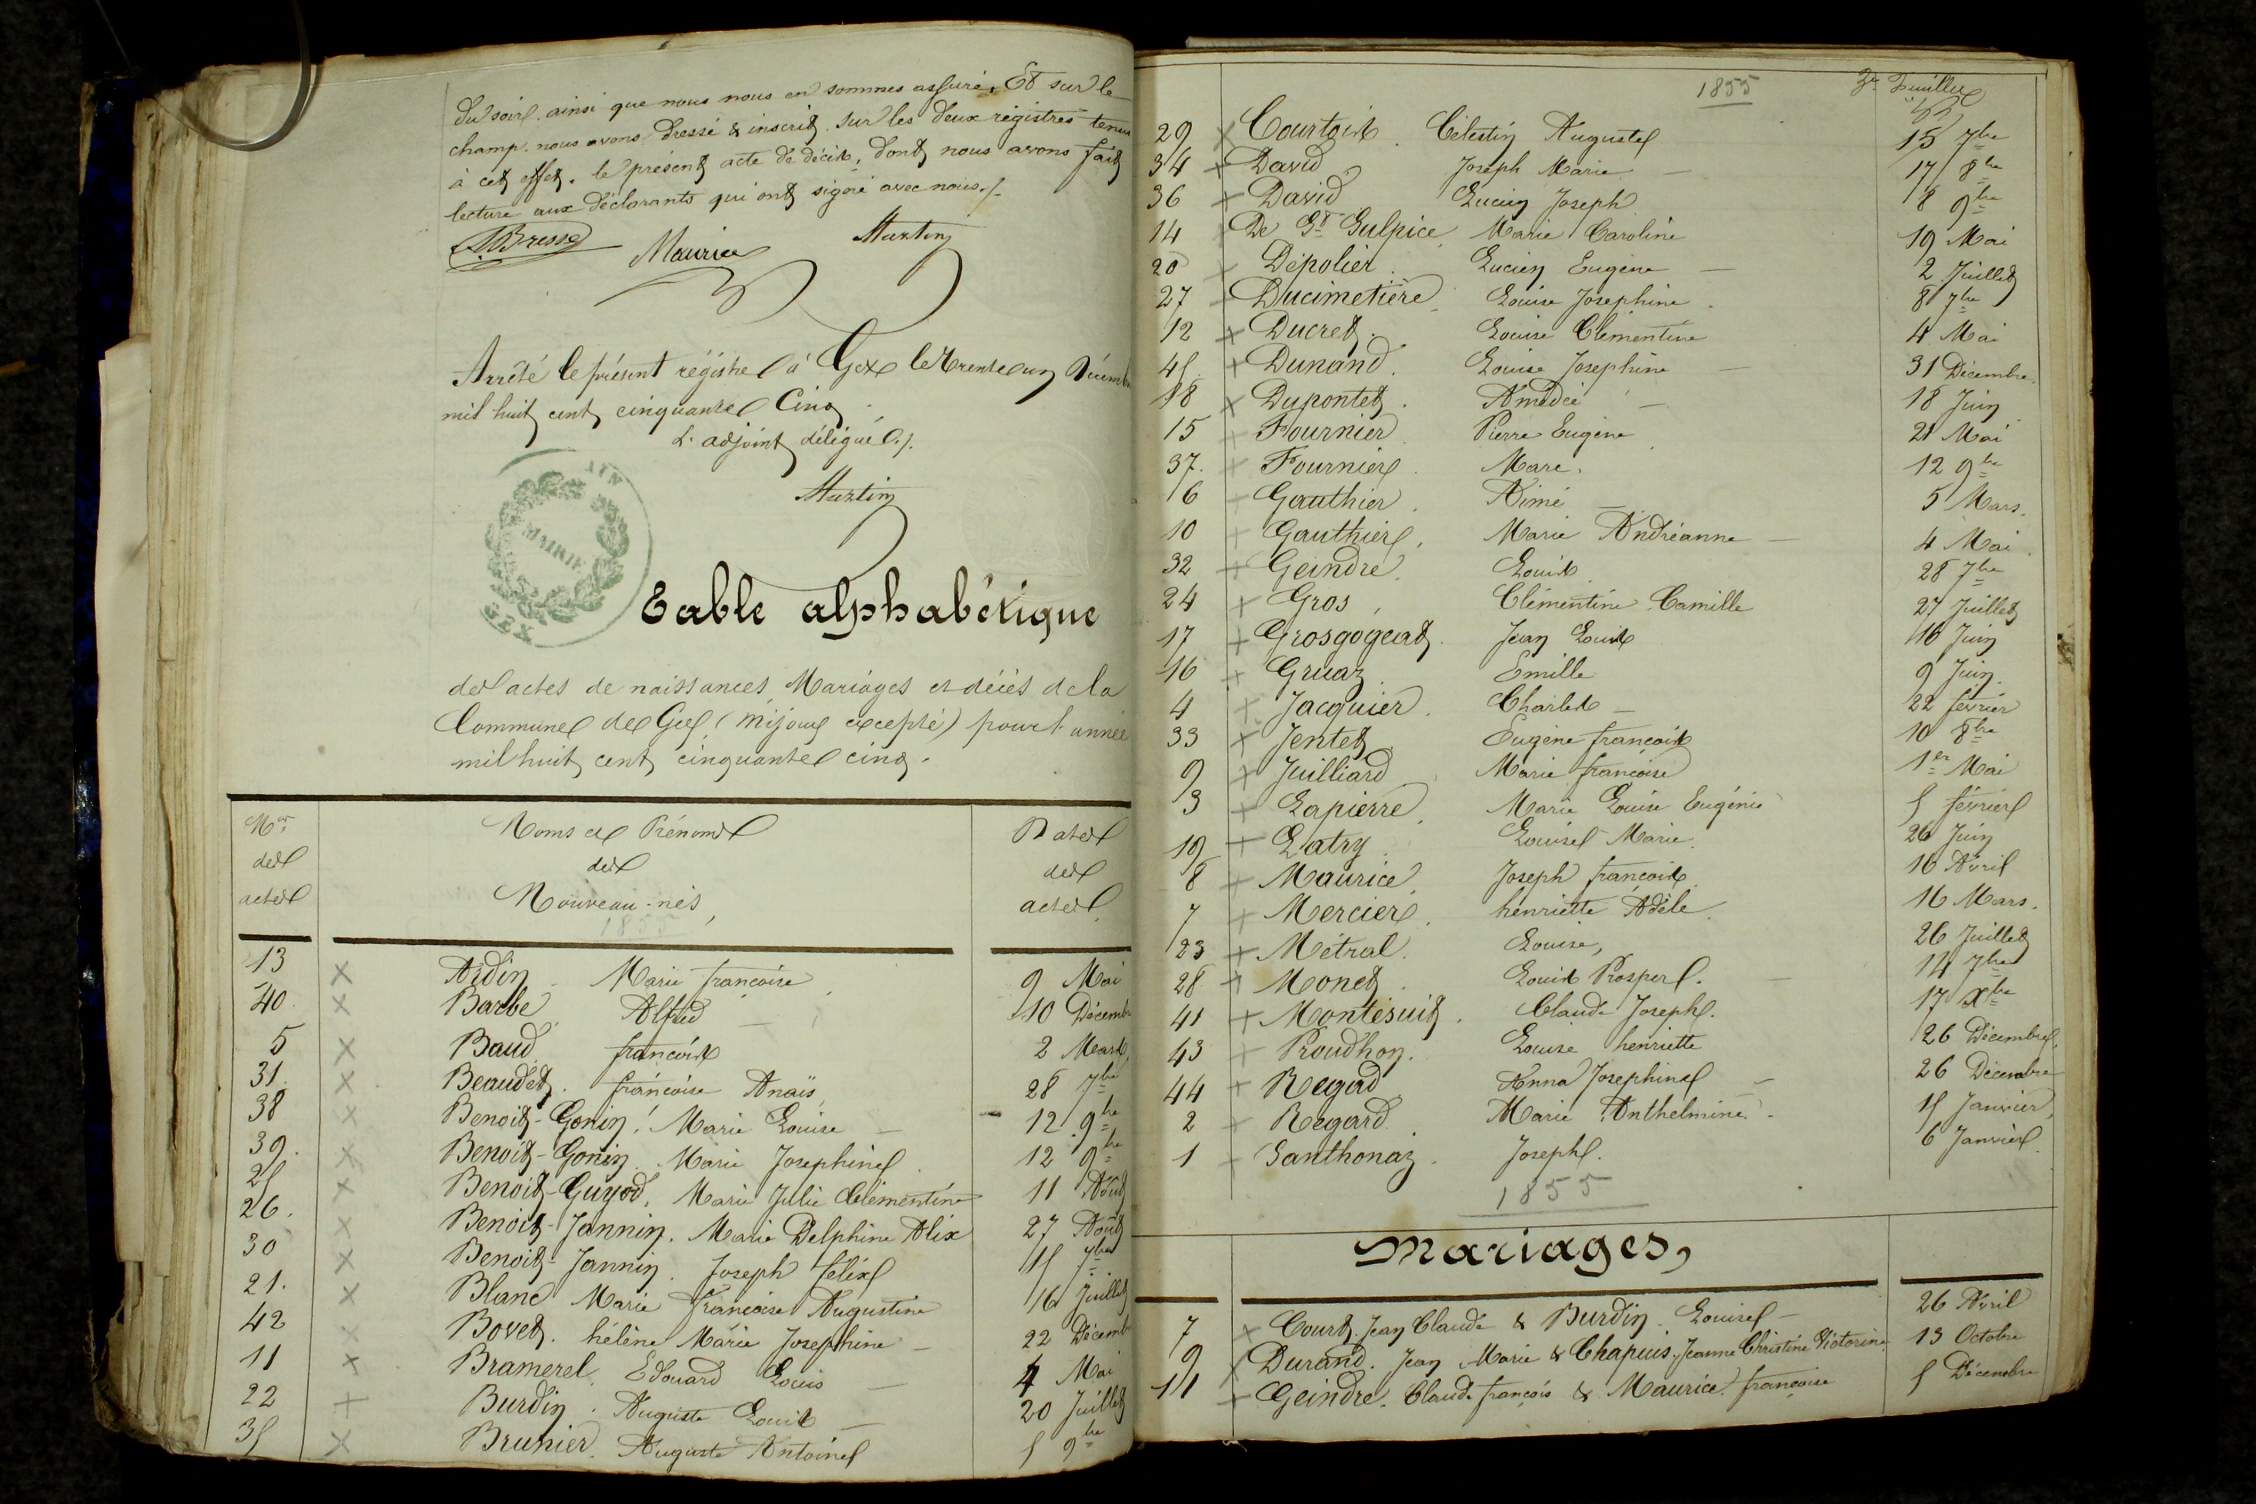 du soir. ainsi que nous nous en sommes assuré, Et sur le
champ. nous avons dressé & inscrit sur les deux régistres tenus
à cet effet. le présent acte de décès, dont nous avons fait
lecture aux déclarants qui ont signé avec nous./.
Bresse Maurice Martin
Arrêté le présent régistre à Gex le trente un Décembre
mil huit cent cinquante Cinq.
L'adjoint délégué./.
Martin
AIN
MAIRIE
GEX
Table alphabétique
des actes de naissances, Mariages et décès de la
Commune de Gex (Mijoux excepté) pour l'année
mil huit cent cinquante cinq.
Nos des actes
Noms et Prénoms des Nouveau-nés,
Dates des actes
1855
13 Ardin Marie françoise 9 Mai
40. Barbe Alfred 10 Décembre
5 Baud françois 2 Mars
31. Beaudet. françoise Anaïs 28 7bre
38 Benoit-Gonin. Marie Louise 12 9bre
39. Benoit-Gonin. Marie Josephine 12 9bre
25 Benoit-Guyod. Marie Julie Clémentine 11 Août
26. Benoit-Jannin. Marie Delphine Alix 27 Août
30 Benoit-Jannin. Joseph félix 15 7bre
21. Blanc Marie françoise Augustine 16 Juillet
42 Bovet. hélène Marie Josephine 22 Décembre
11 Bramerel. Edouard Louis 4 Mai
22 Burdin. Auguste Louis 20 Juillet
35 Brunier. Auguste Antoine 5 9bre
1855 3e feuillet
29 Courtois Célestin Auguste 15 7bre
34 David Joseph Marie 17 8bre
36 David Lucien Joseph 8 9bre
14 De St Sulpice Marie Caroline 19 Mai
20 Dépolier. Lucien Eugène 2 Juillet
27 Ducimetière Louise Josephine 8 7bre
12 Ducret. Louise Clémentine 4 Mai
45 Dunand. Louise Josephine 31 Décembre.
18 Dupontet. Amédée 18 Juin
15 Fournier Pierre Eugène 21 Mai
37. Fournier Marc. 12 9bre
6 Gauthier Aimé 5 Mars.
10 Gauthier. Marie Andréanne 4 Mai
32 Geindre. Louis 28 7bre
24 Gros, Clémentine Camille 27 Juillet
17 Grosgogeat. Jean Louis 16 Juin
16 Gruaz Emille 9 Juin
4 Jacquier. Charles 22 février
33 Jentet Eugène françois 10 8bre
9 Juilliard Marie françoise 1er Mai
3 Lapierre. Marie Louise Eugénie 5 février
19 Latry Louise Marie. 26 Juin
8 Maurice. Joseph françois. 16 Avril
7 Mercier. henriette Adèle. 16 Mars.
23 Métral. Louise, 26 Juillet
28 Monet. Louis Prosper. 14 7bre
41 Montésuit. Claude Joseph. 17 Xbre
43 Proudhon. Louise henriette 26 Décembre.
44 Regard Anna Josephine 26 Décembre
2 Regard. Marie Anthelmine. 15 Janvier,
1 Santhonaz. Joseph. 6 Janvier.
1855
Mariages,
7 Court, Jean Claude & Burdin. Louise 26 Avril
9 Durand. Jean Marie & Chapuis. Jeanne Christine Victorine 13 Octobre
11 Geindre. Claude françois & Maurice. françoise 5 Décembre